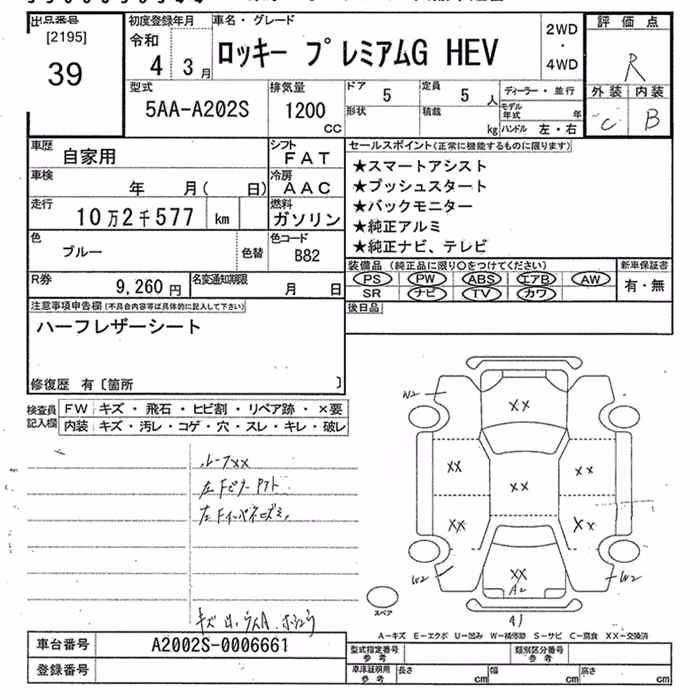 出品番号
[2195]
39
初度登録年月
令和 4 3月
車名・グレード
ロッキー プレミアムG HEV
2WD
・
4WD
評価点
R
外装 内装
C B
型式
5AA-A202S
排気量
1200
CC
ドア
5
定員
5 人
形状
積載
kg
ディーラー・並行
モデル年式 年
ハンドル 左・右
車歴
自家用
シフト
FAT
車検
年 月( 日)
冷房
AAC
走行
10万2千577 km
燃料
ガソリン
色
ブルー
色替
色コード
B82
R券
9,260円
名変通知期限
月 日
セールスポイント(正常に機能するものに限ります)
★スマートアシスト
★プッシュスタート
★バックモニター
★純正アルミ
★純正ナビ、テレビ
装備品 (純正品に限り○をつけてください)
PS PW ABS エアB AW
SR ナビ TV カワ
新車保証書
有・無
後日品
注意事項申告欄 (不具合内容等は具体的に記入して下さい)
ハーフレザーシート
修復歴 有〔箇所 〕
検査員記入欄
FW キズ・飛石・ヒビ割・リペア跡・×要
内装 キズ・汚レ・コゲ・穴・スレ・キレ・破レ
ルーフXX
左Fピラー
左Fインパネヒズミ
W2
XX
XX XX XX
XX XX
W2 XX W2
A2
A1
スペア
A-キズ E-エクボ U-凹み W-補修跡 S-サビ C-腐食 XX-交換済
車台番号
A2002S-0006661
登録番号
型式指定番号参考
類別区分番号参考
車庫証明用参考
長さ cm
幅 cm
高さ cm